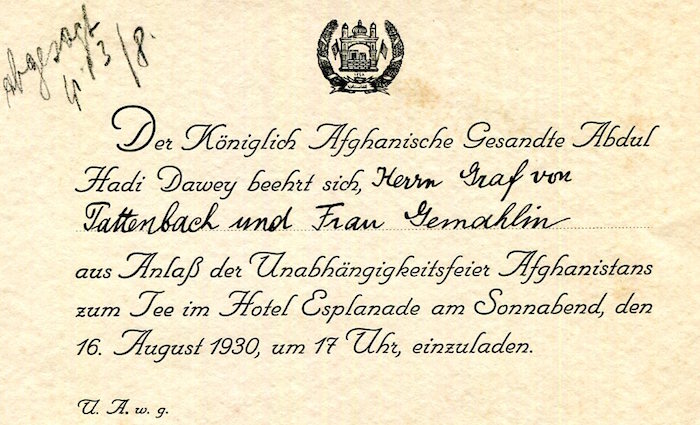 abgesagt
13/8.
Der Königlich Afghanische Gesandte Abdul
Hadi Dawey beehrt sich, Herrn Graf von
Tattenbach und Frau Gemahlin
aus Anlaß der Unabhängigkeitsfeier Afghanistans
zum Tee im Hotel Esplanade am Sonnabend, den
16. August 1930, um 17 Uhr, einzuladen.
U. A. w. g.